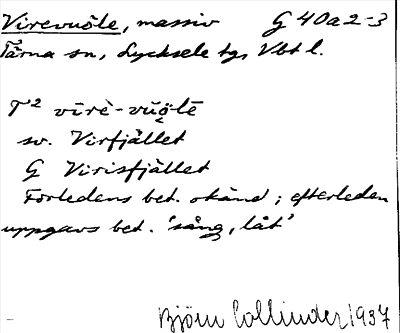 Virevuöle, massiv G 40a2-3
Tärna sn, Lycksele tg, Vbt l.
T² vīrè-vūo̭lē
sv. Virfjället
G Virisfjället
Förledens bet. okänd; efterleden
uppgavs bet. 'sång, låt'
Björn Collinder 1937